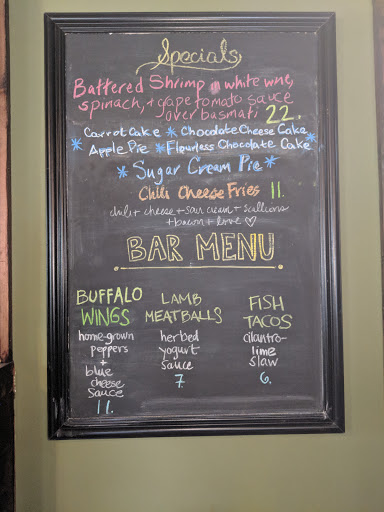 Specials
Battered Shrimp in white wine,
spinach, + grape tomato sauce
over basmati 22.
Carrot Cake * Chocolate Cheese Cake
* Apple Pie * Flourless Chocolate Cake *
* Sugar Cream Pie *
Chili Cheese Fries 11.
chili + cheese + sour cream + scallions
+ bacon + love ♡
BAR MENU
BUFFALO
WINGS
home-grown
peppers
+
blue
cheese
sauce
11.
LAMB
MEATBALLS
herbed
yogurt
sauce
7.
FISH
TACOS
cilantro-
lime
slaw
6.